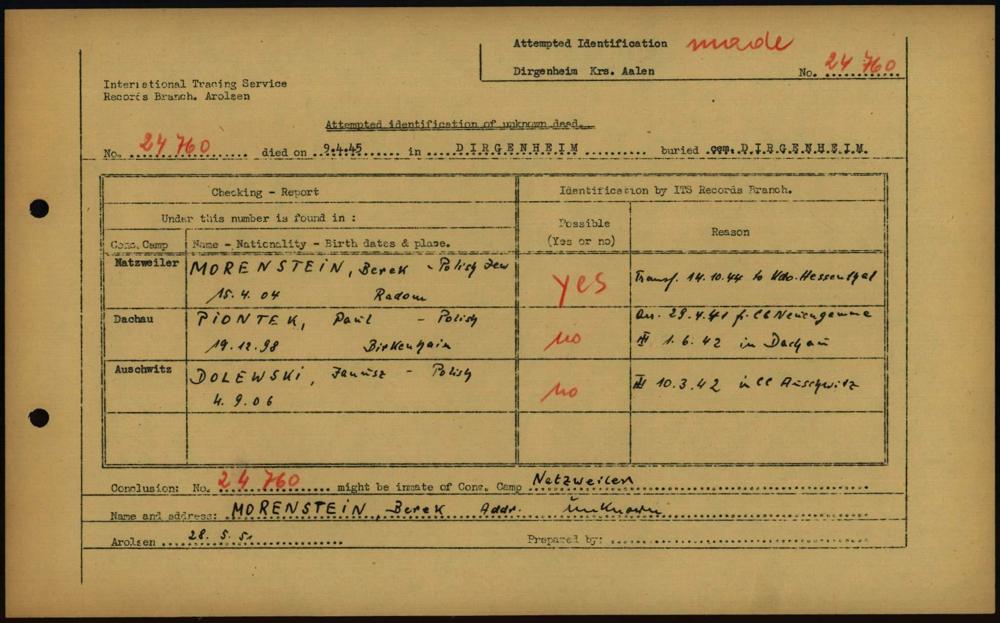 Attempted Identification made
Dirgenheim Krs. Aalen No. 24 760
International Tracing Service
Records Branch. Arolsen
Attempted identification of unknown dead.
No. 24 760 died on 9.4.45 in DIRGENHEIM buried cem. DIRGENHEIM.
Checking - Report Identification by ITS Records Branch.
Under this number is found in :
Possible (Yes or no) Reason
Conc. Camp Name - Nationality - Birth dates & place.
Natzweiler MORENSTEIN, Berek - Polish Jew yes Transf. 14.10.44 to Kdo. Hessenthal
15.4.04 Radom
Dachau PIONTEK, Paul - Polish no Arr. 29.4.41 f. CC Neuengamme
19.12.98 Birkenhain 1.6.42 in Dachau
Auschwitz DOLEWSKI, Janusz - Polish no 10.3.42 in CC Auschwitz
4.9.06
Conclusion: No. 24 760 might be inmate of Conc. Camp Natzweiler
Name and address: MORENSTEIN, Berek Addr. Unknown
Arolsen 28.5.51 Prepared by: